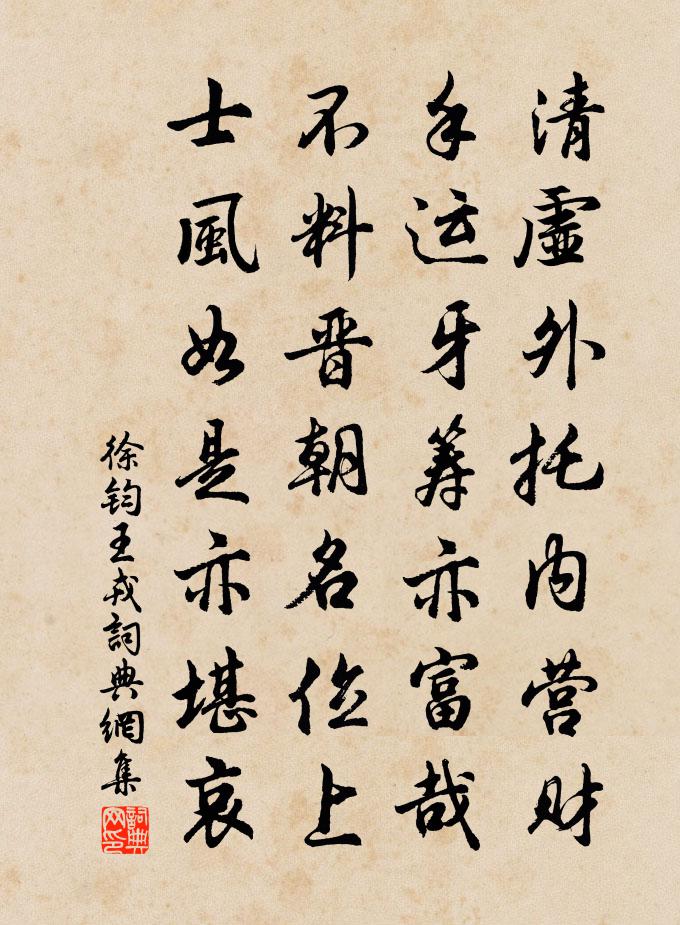 清虚外托内营财
手运牙筹亦富哉
不料晋朝名位上
士風如是亦堪哀
徐钧王戎詞典網集
詞典网印